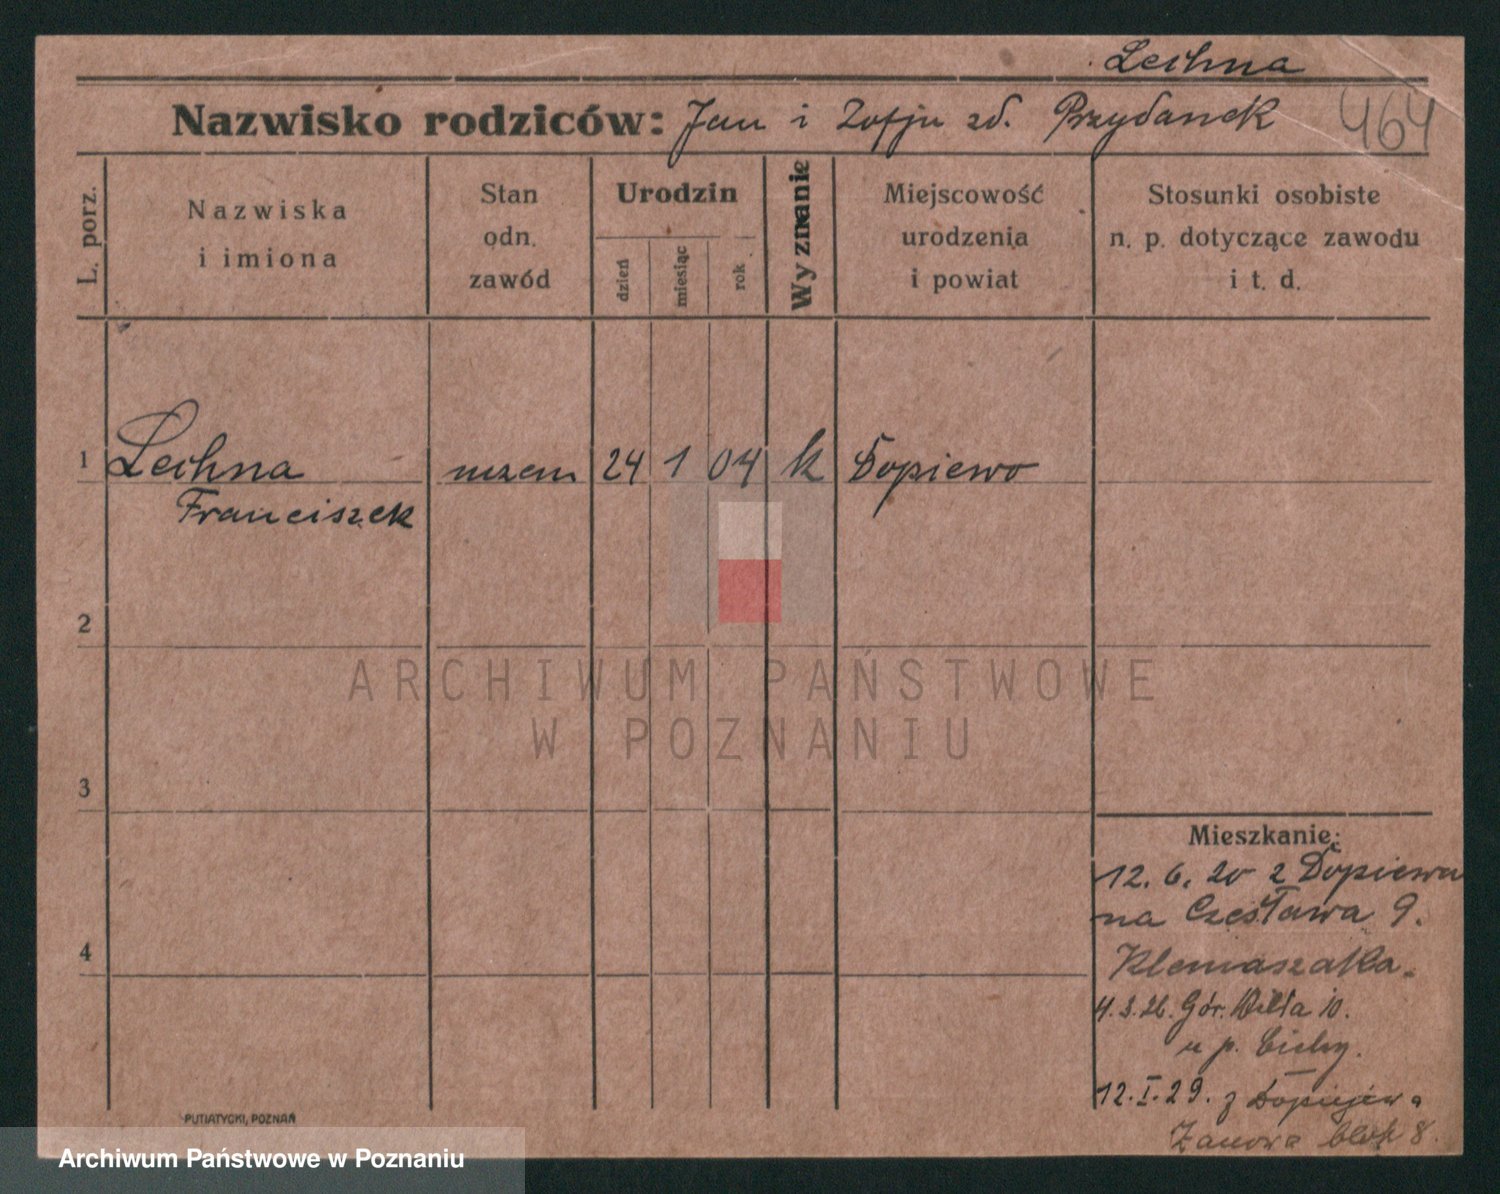 Lechna
Nazwisko rodziców: Jan i Zofju zd. Przydanek 464
L. porz.
Nazwiska
i imiona
Stan
odn.
zawód
Urodzin
dzień
miesiąc
rok
Wyznanie
Miejscowość
urodzenia
i powiat
Stosunki osobiste
n. p. dotyczące zawodu
i t. d.
1 Lechna 24 1 04 k Dopiewo
Franciszek
2
3
4
ARCHIWUM PAŃSTWOWE
W POZNANIU
Mieszkanie:
12. 6. 20 z Dopiewa
na Czesława 9.
4.3.26. Gór. Wilda 10.
u p. Cichy.
12.I.29. z Dopiewa
blok 8.
PUTIATYCKI, POZNAŃ
Archiwum Państwowe w Poznaniu